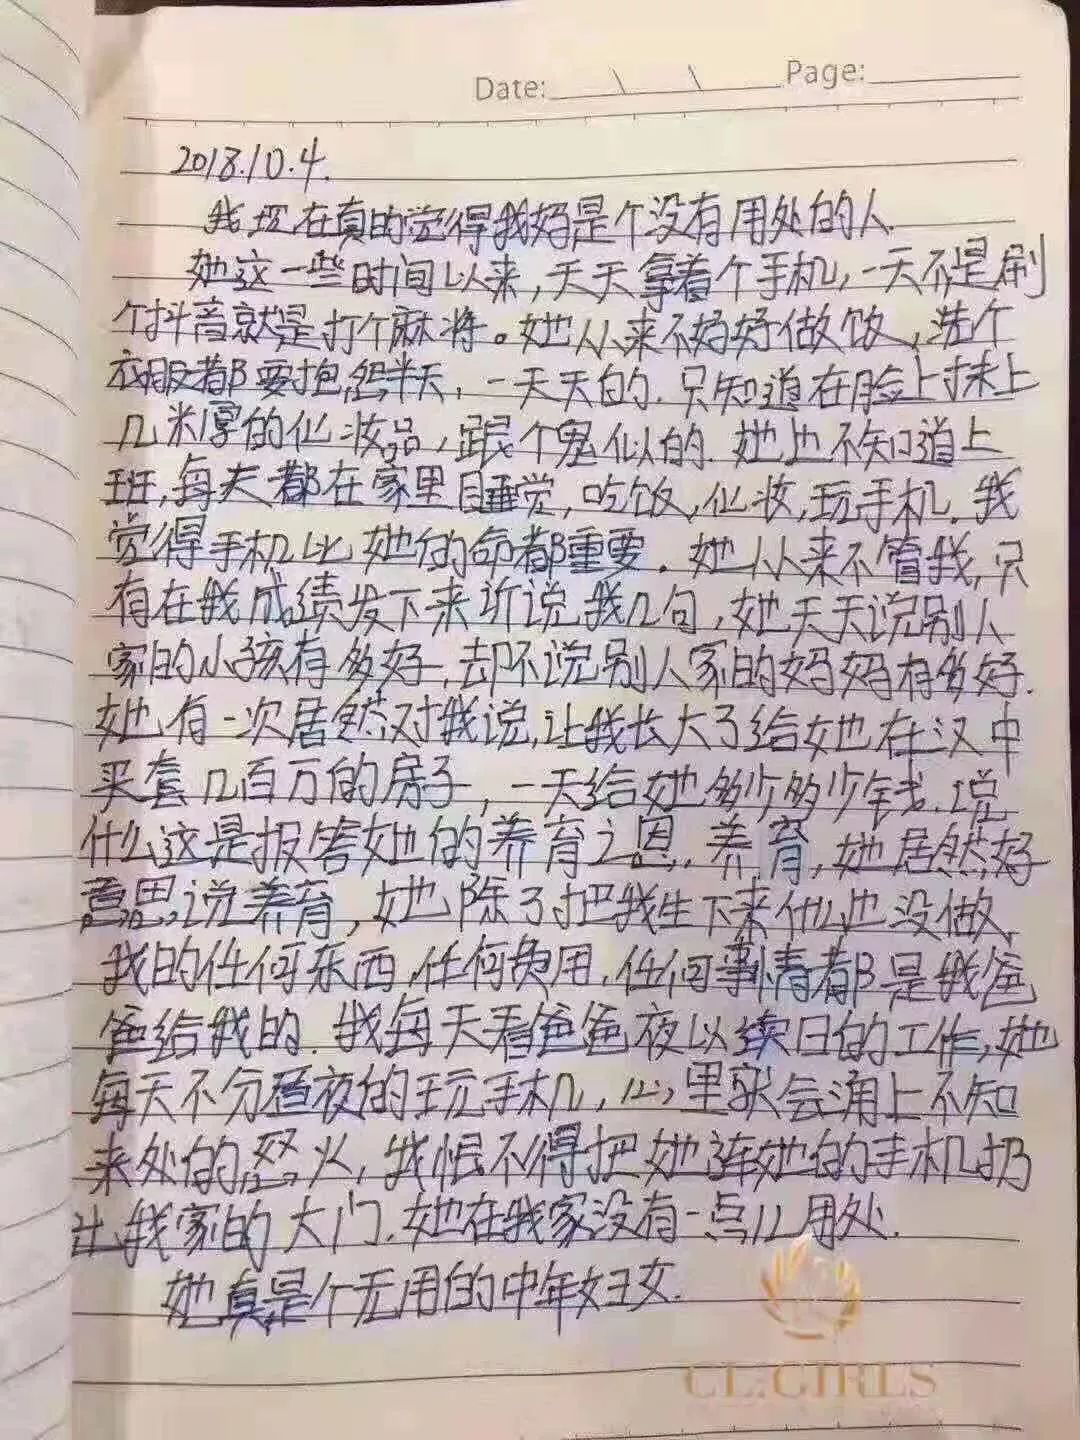 Date: \ \ Page:
2018.10.4.
我现在真的觉得我妈是个没有用处的人
她这一些时间以来，天天拿着个手机，一天不是刷
个抖音就是打个麻将。她从来不好好做饭，洗个
衣服都要抱怨半天，一天天的.只知道在脸上抹上
几米厚的化妆品，跟个鬼似的.她也不知道上
班，每天都在家里睡觉，吃饭，化妆，玩手机.我
觉得手机比她的命都重要。她从来不管我，只
有在我成绩发下来听说我几句，她天天说别人
家的小孩有多好，却不说别人家的妈妈有多好.
她有一次居然对我说，让我长大了给她在汉中
买套几百万的房子，一天给她多少多少钱.说
什么这是报答她的养育之恩.养育，她居然好
意思说养育，她除了把我生下来什么也没做.
我的任何东西，任何费用，任何事情都是我爸
爸给我的.我每天看爸爸夜以续日的工作，她
每天不分昼夜的玩手机，心里就会涌上不知
来处的怒火，我恨不得把她连她的手机扔
出我家的大门.她在我家没有一点儿用处.
她真是个无用的中年妇女.
CL:GIRLS